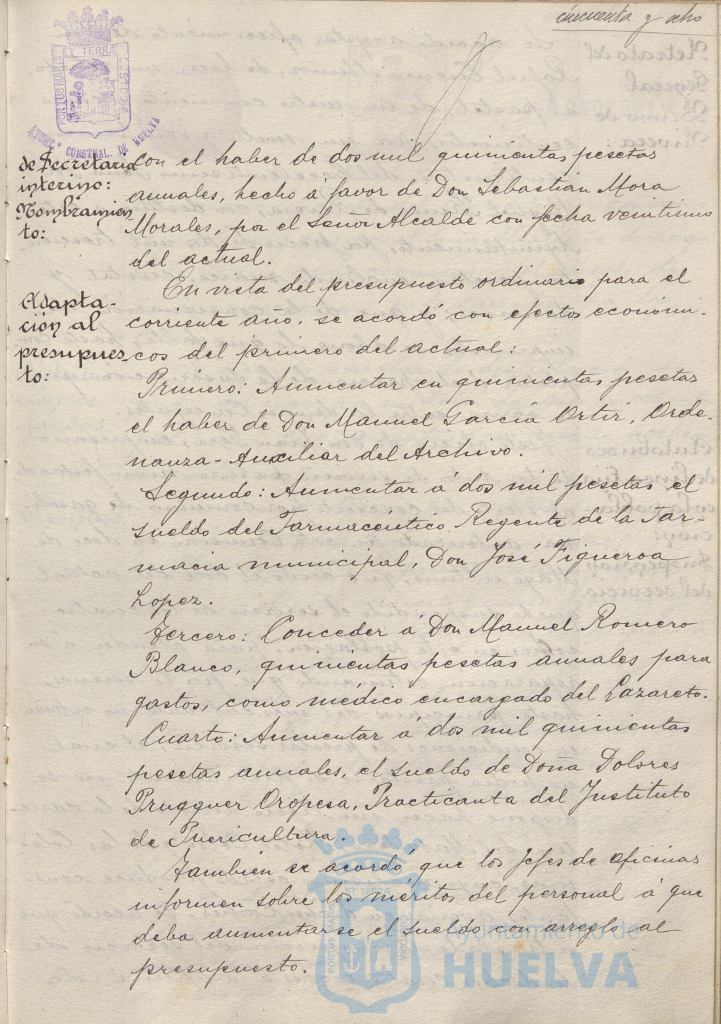 cincuenta y ocho
PORTUS MARIS ET TERRE CUSTODIA
AYUNT° CONSTNAL. DE HUELVA
de Secretaria
interino:
Nombramien
to:
con el haber de dos mil quinientas pesetas
anuales, hecho á favor de Don Sebastián Mora
Morales, por el Señor Alcalde con fecha veintiuno
del actual.
Adapta-
ción al
presupues-
to:
En vista del presupuesto ordinario para el
corriente año, se acordó con efectos económi-
cos del primero del actual:
Primero: Aumentar en quinientas pesetas
el haber de Don Manuel García Ortiz, Orde-
nanza-Auxiliar del Archivo.
Segundo: Aumentar á dos mil pesetas el
sueldo del Farmacéutico Regente de la Far-
macia municipal, Don José Figueroa
Lopez.
Tercero: Conceder á Don Manuel Romero
Blanco, quinientas pesetas anuales para
gastos, como médico encargado del Lazareto.
Cuarto: Aumentar á dos mil quinientas
pesetas anuales, el sueldo de Doña Dolores
Brugguer Oropesa, Practicanta del Instituto
de Puericultura.
También se acordó que los Jefes de oficinas
informen sobre los méritos del personal á que
deba aumentarse el sueldo con arreglo al
presupuesto.
Ayuntamiento de
HUELVA